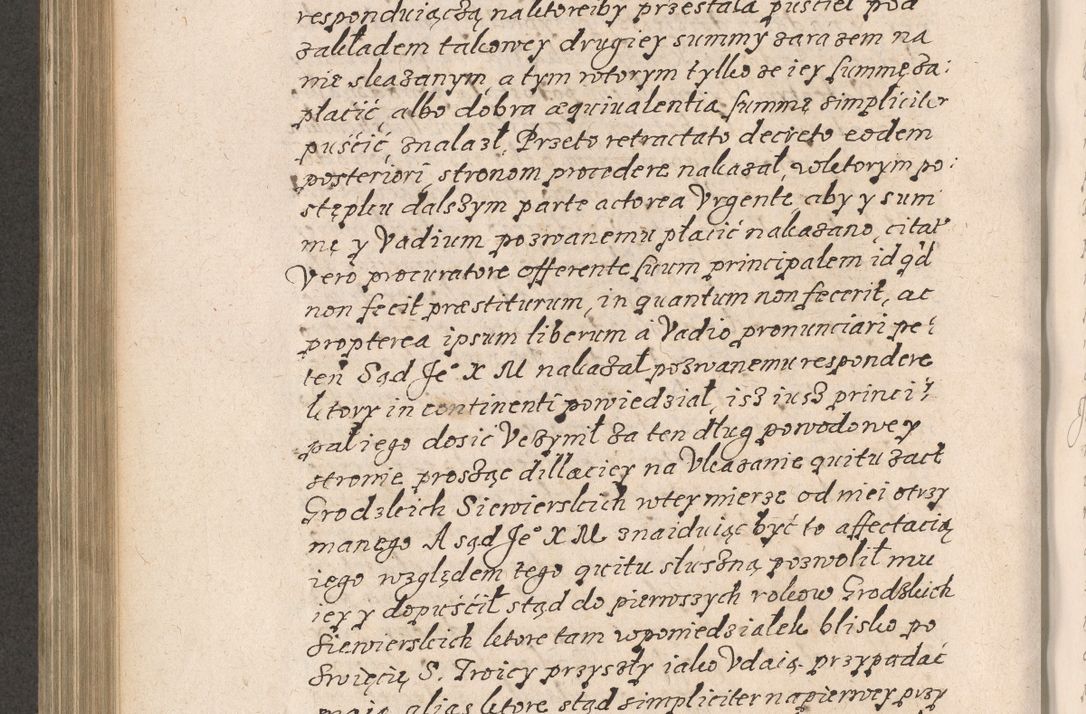 responduiączą, na ktoreiby przestała puscieł pod
zakładem takowey drugiey summy zarazem na
nię skazanym, a tym wtorym tylko że iey summę za:
płacić, albo dobra æquiualentia summę simpliciter
puśćić, znalazł, Przeto retractato decreto eodem
posteriori, stronom procedere nakazał, w ktorym po:
stępku dalszym parte actorea Vrgente, aby y sum
mę y Vadium pozwanemu płacić nakazano, citati
Vero procuratore offerente suum principalem id qd
non fecit præstiturum, in quantum non fecerit, ac
propterea ipsum liberum à Vadio pronunciari pe:
ten Sąd Je° X M nakazał pozwanemu respondere
ktory in continenti powiedział, isz iusz princi:
pał iego dosic Vczynił za ten dług powodowey
stronie prosząc dillaciey na Vkazanie quitu z act
Grodzkich Siewierskich w tey mierze od niei otrzy
manego A sąd Je° X M znaiduiąc być to affectacią
iego względem tego quitu słuszną pozwolił mu
iey y dopuścił stąd do pierwszych rokow Grodzkich
Siewierskich ktore tam w poniedziałek blisko po
Swięcię S. Troicy przyszły iako Vdaią przypadać
maią, alias ktore stąd simpliciter na pierwey przy